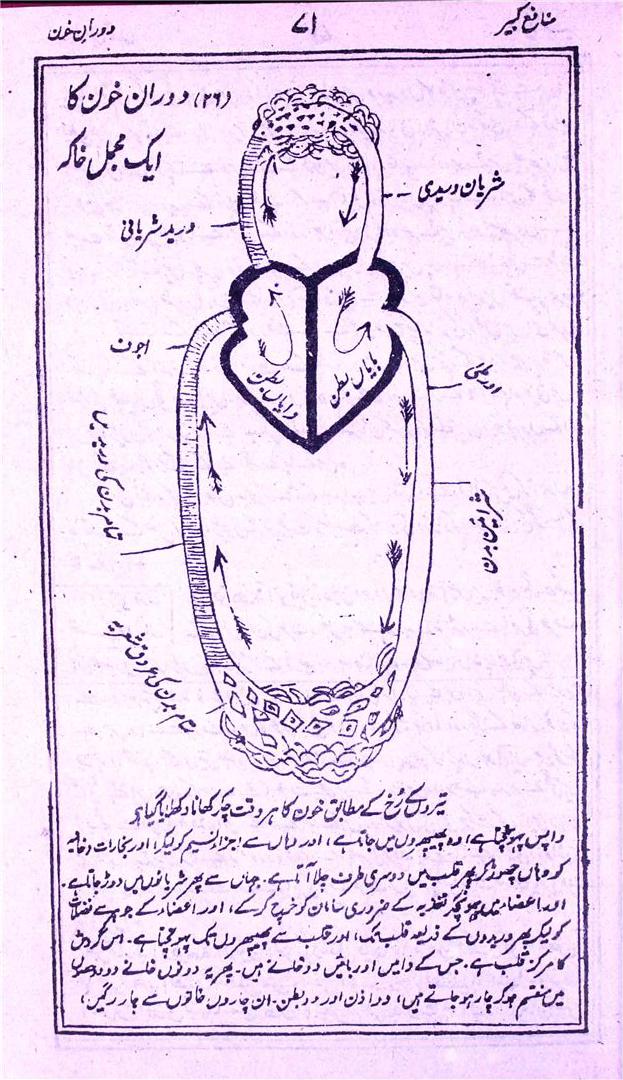 منافع کبیر
۷۱
دوران خون
(۲۶) دوران خون کا
ایک مجمل خاکہ
شریان وریدی
ورید شریانی
اجوف
اورطی
دایاں بطن
بایاں بطن
تمام بدن کی وریدیں
شرائین بدن
تمام بدن کی عروق شعریہ
تیروں کے رُخ کے مطابق خون کا ہر وقت چکر کھانا دکھلایا گیا ہے
واپس پہونچتا ہے، وہ پھیپھڑوں میں جاتا ہے، اور وہاں سے اجزاء نسیم کو لیکر، اور بخارات دخانیہ
کو وہاں چھوڑ کر پھر قلب میں دوسری طرف چلا آتا ہے۔ جہاں سے پھر شریانوں میں دوڑ جاتا ہے۔
اور اعضاء میں پہونچکر تغذیہ کے ضروری سامان کو خرچ کر کے، اور اعضاء کے جو ہے فضلات
کو لیکر پھر وریدوں کے ذریعہ قلب تک، اور قلب سے پھیپھڑوں تک پہونچتا ہے۔ اس گردش
کا مرکز قلب ہے۔ جس کے دایس اور بائیں دو خانے ہیں۔ پھر یہ دونوں خانے دو دو حصوں
میں منقسم ہو کر چار ہو جاتے ہیں، دو اذن اور دو بطن۔ ان چاروں خانوں سے چار رگیں،